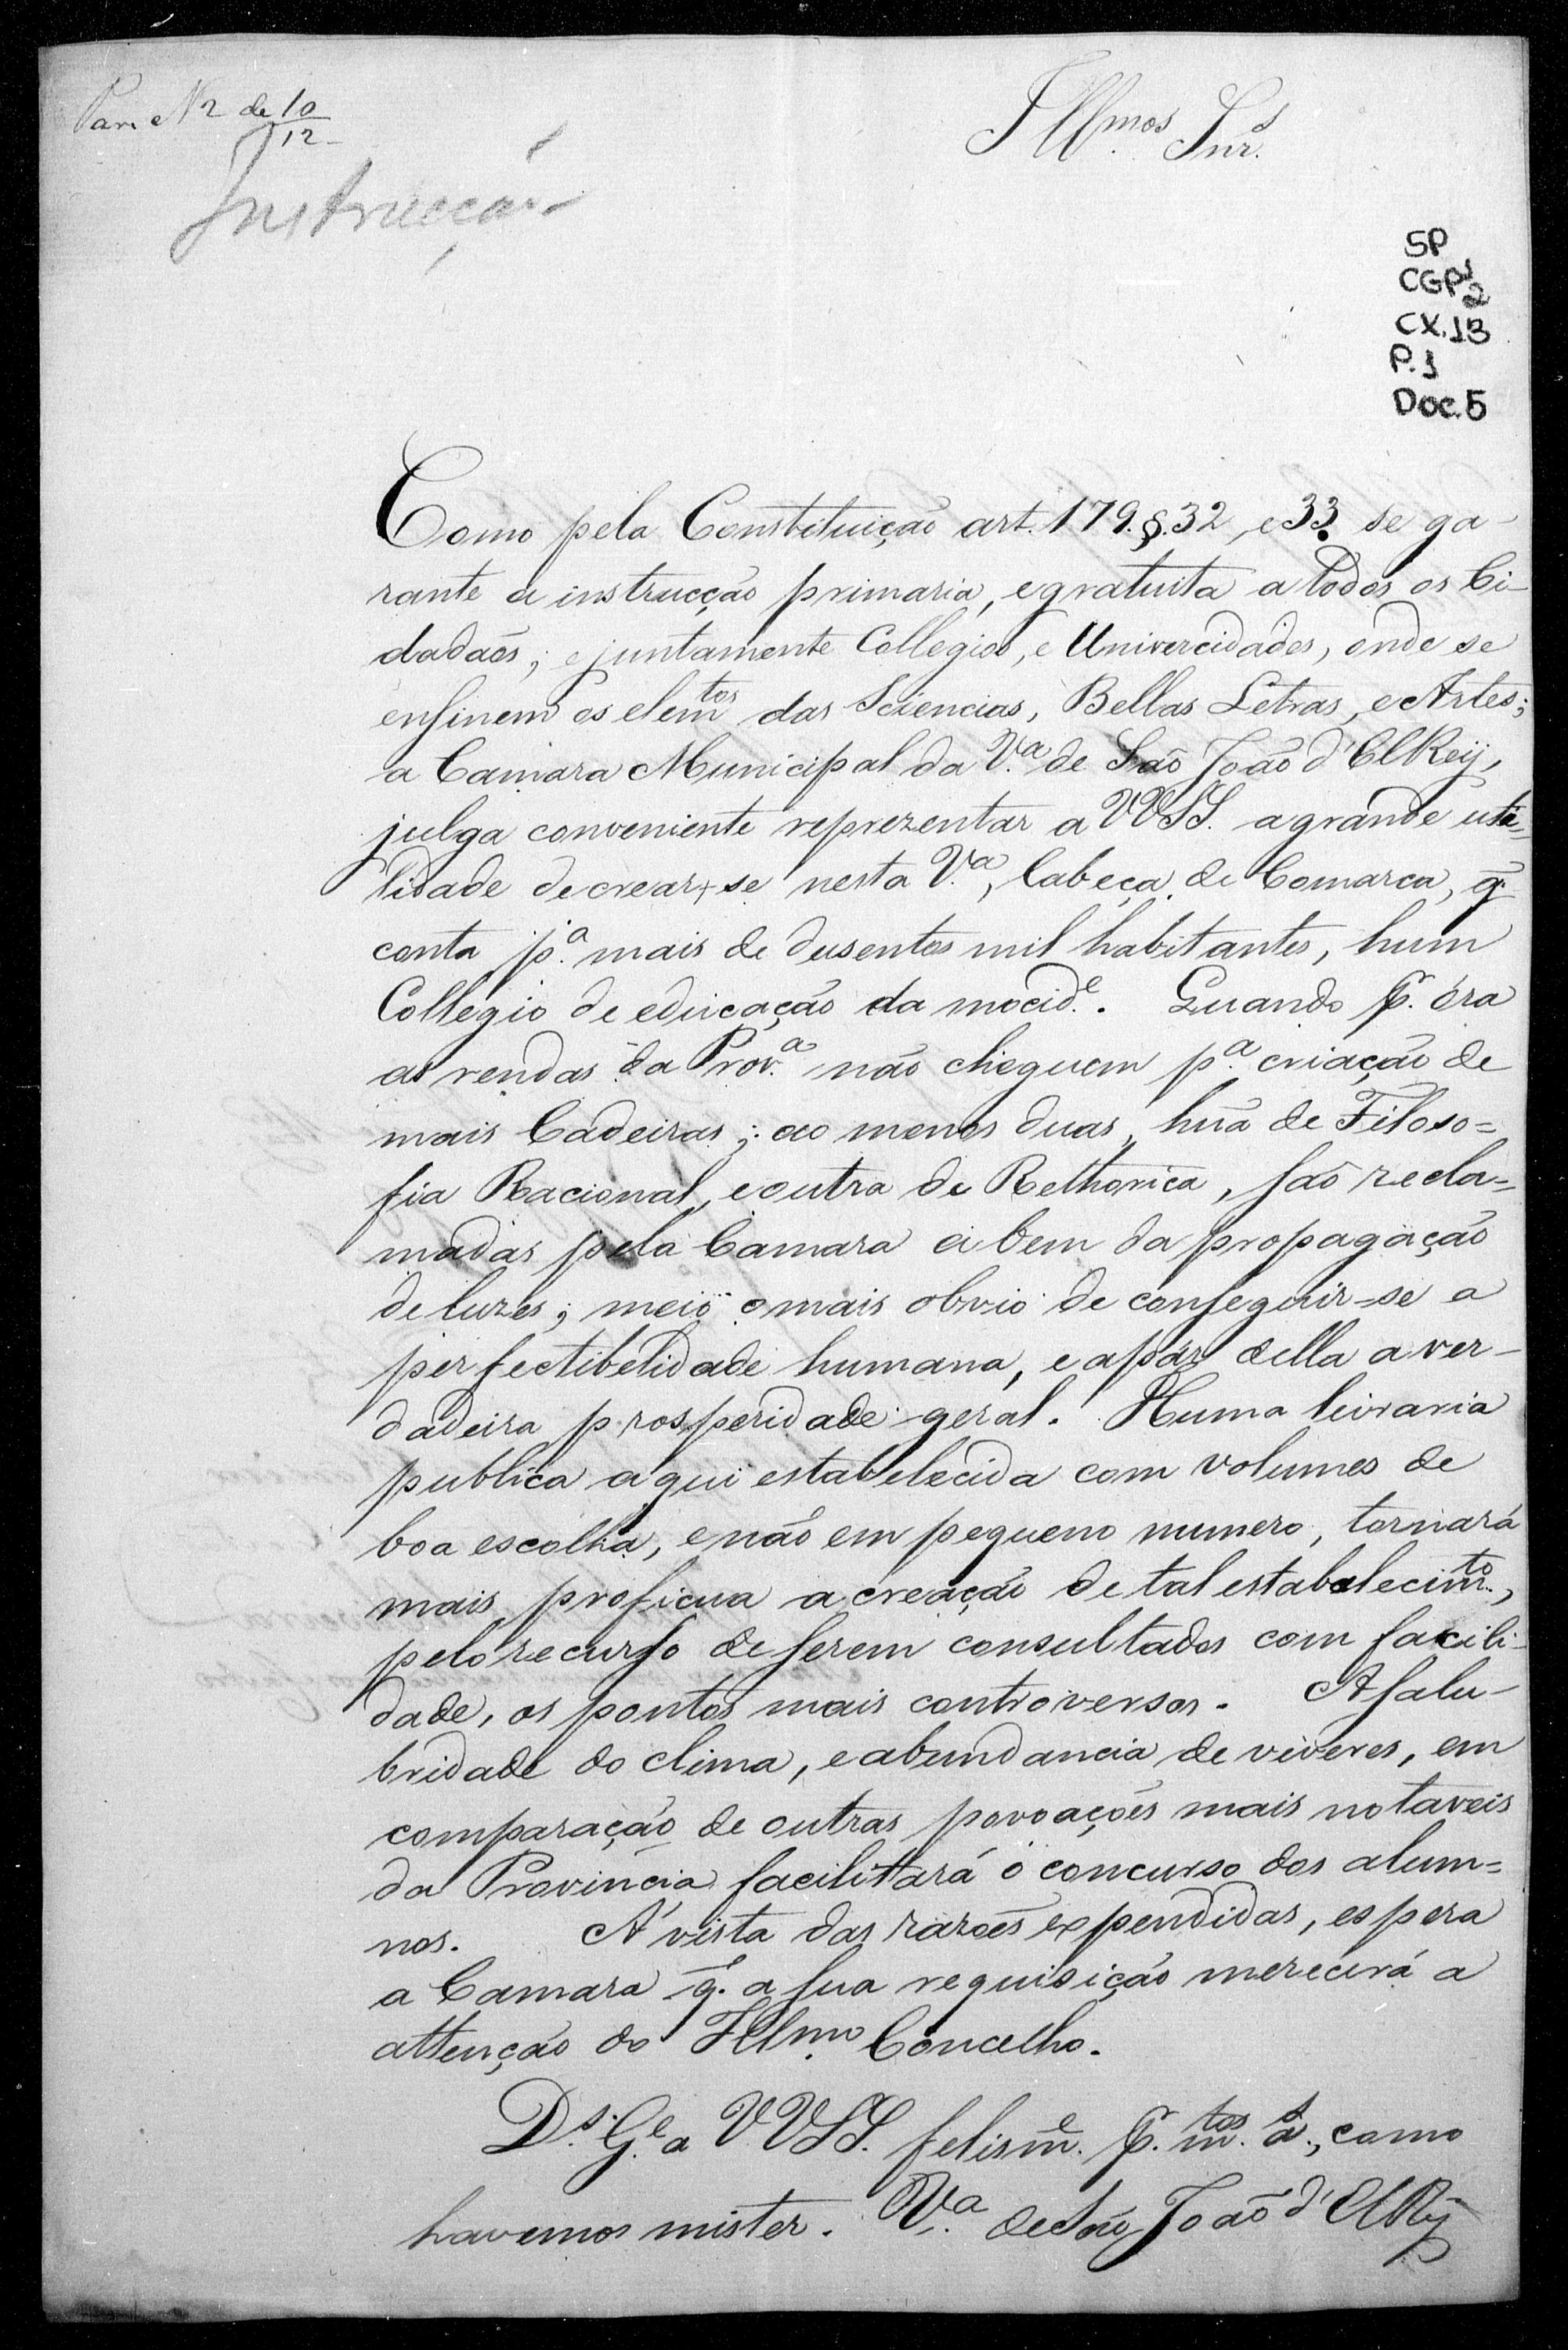 Par. e N2 de 10/12
Instrucção
Illmos Snrs.
SP
CGP 1/2
CX. 13
P. 1
Doc. 5
Como pela Constituição art. 179. §. 32, e 33. se ga-
rante a instrucção primaria, e gratuita a todos os Ci-
dadaõs; e juntamente Collegios, e Univercidades, onde se
ensinem os elemtos das Sciencias, Bellas Letras, e Artes;
a Camara Municipal da V.a de São João d'ElRey,
julga conveniente reprezentar a VVSS. a grande uti=
lidade de crear-se nesta V.a, Cabeça de Comarca, q̃
conta p.a mais de dusentos mil habitantes, hum
Collegio de educação da mocid.e. Quando p. óra
as rendas da Prov.a não cheguem p.a criação de
mais Cadeiras; ao menos duas, hũa de Filoso=
fia Racional, e outra de Rethorica, são recla=
madas pela Camara a bem da propagação
de luzes; meio o mais obvio de conseguir-se a
perfectibelidade humana, e apar della a ver-
dadeira prosperidade geral. Huma livraria
publica aqui estabelecida com volumes de
boa escolha, e não em pequeno numero, tornará
mais proficua a creação de tal estabalecimto.,
pelo recurso de serem consultados com facili-
dade, os pontos mais controversos. A salu-
bridade do clima, e abundancia de viveres, em
comparação de outras povoações mais notaveis
da Provincia facilittará o concurso dos alum=
nos. A' vista das razoẽs expendidas, espera
a Camara q̃. a sua requisição merecerá a
attenção do Illmo Concelho.
D.s G.e a VVSS. felism.e p. m.tos a.s, como
havemos mister. V.a de São João d'ElRey